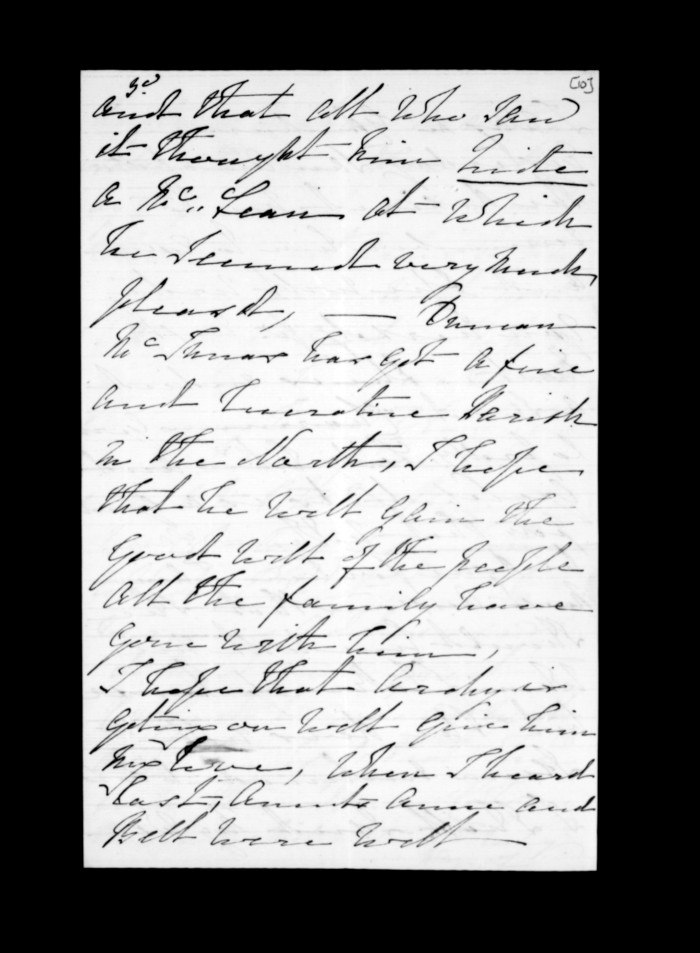 3d
[10]
and that all who saw
it thought him quite
a McLean at which
he seemed very much
pleased, — Duncan
Mc has got a fine
and lucrative Parish
in the North, I hope
that he will gain the
good will of the people
all the family have
gone with him,
I hope that Archy is
geting on well give him
my love, when I heard
last, Aunts Anne and
Bell were well